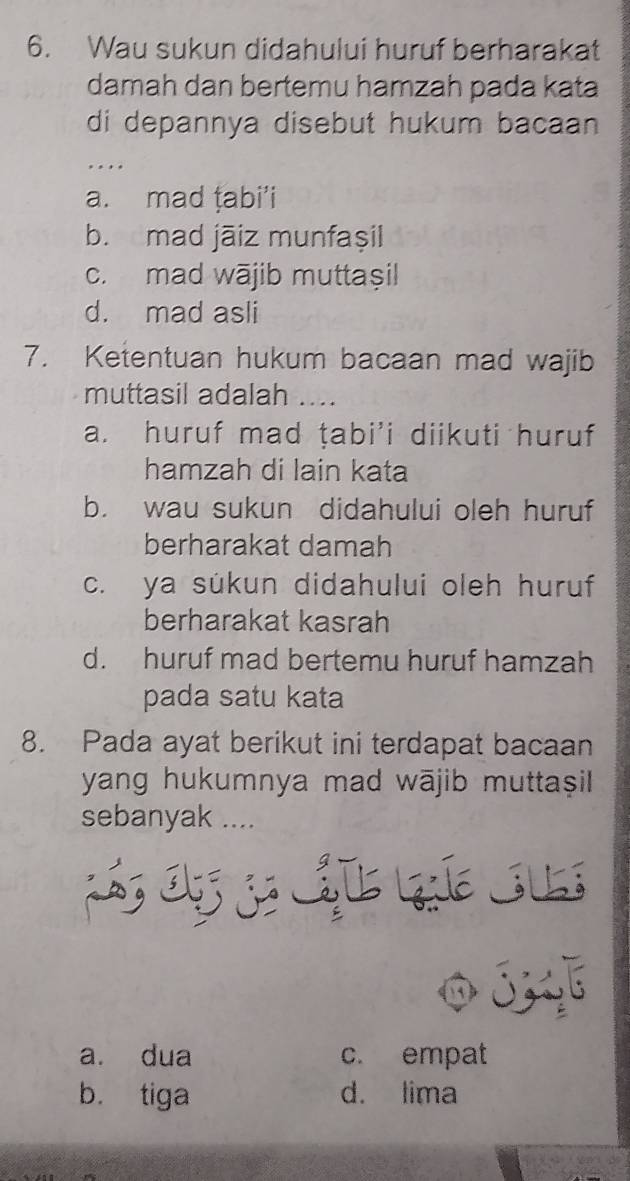 6. Wau sukun didahului huruf berharakat
damah dan bertemu hamzah pada kata
di depannya disebut hukum bacaan
....
a. mad ṭabi'i
b. mad jāiz munfaṣil
c. mad wājib muttaṣil
d. mad asli
7. Ketentuan hukum bacaan mad wajib
muttasil adalah ....
a. huruf mad ṭabi'i diikuti huruf
hamzah di lain kata
b. wau sukun didahului oleh huruf
berharakat damah
c. ya sukun didahului oleh huruf
berharakat kasrah
d. huruf mad bertemu huruf hamzah
pada satu kata
8. Pada ayat berikut ini terdapat bacaan
yang hukumnya mad wājib muttaṣil
sebanyak ....
فَطَافَ عَلَيْهَا طَآئِفٌ مِّنْ رَّبِّكَ وَهُمْ
نَآئِمُوْنَ ﴿١٩﴾
a. dua c. empat
b. tiga d. lima